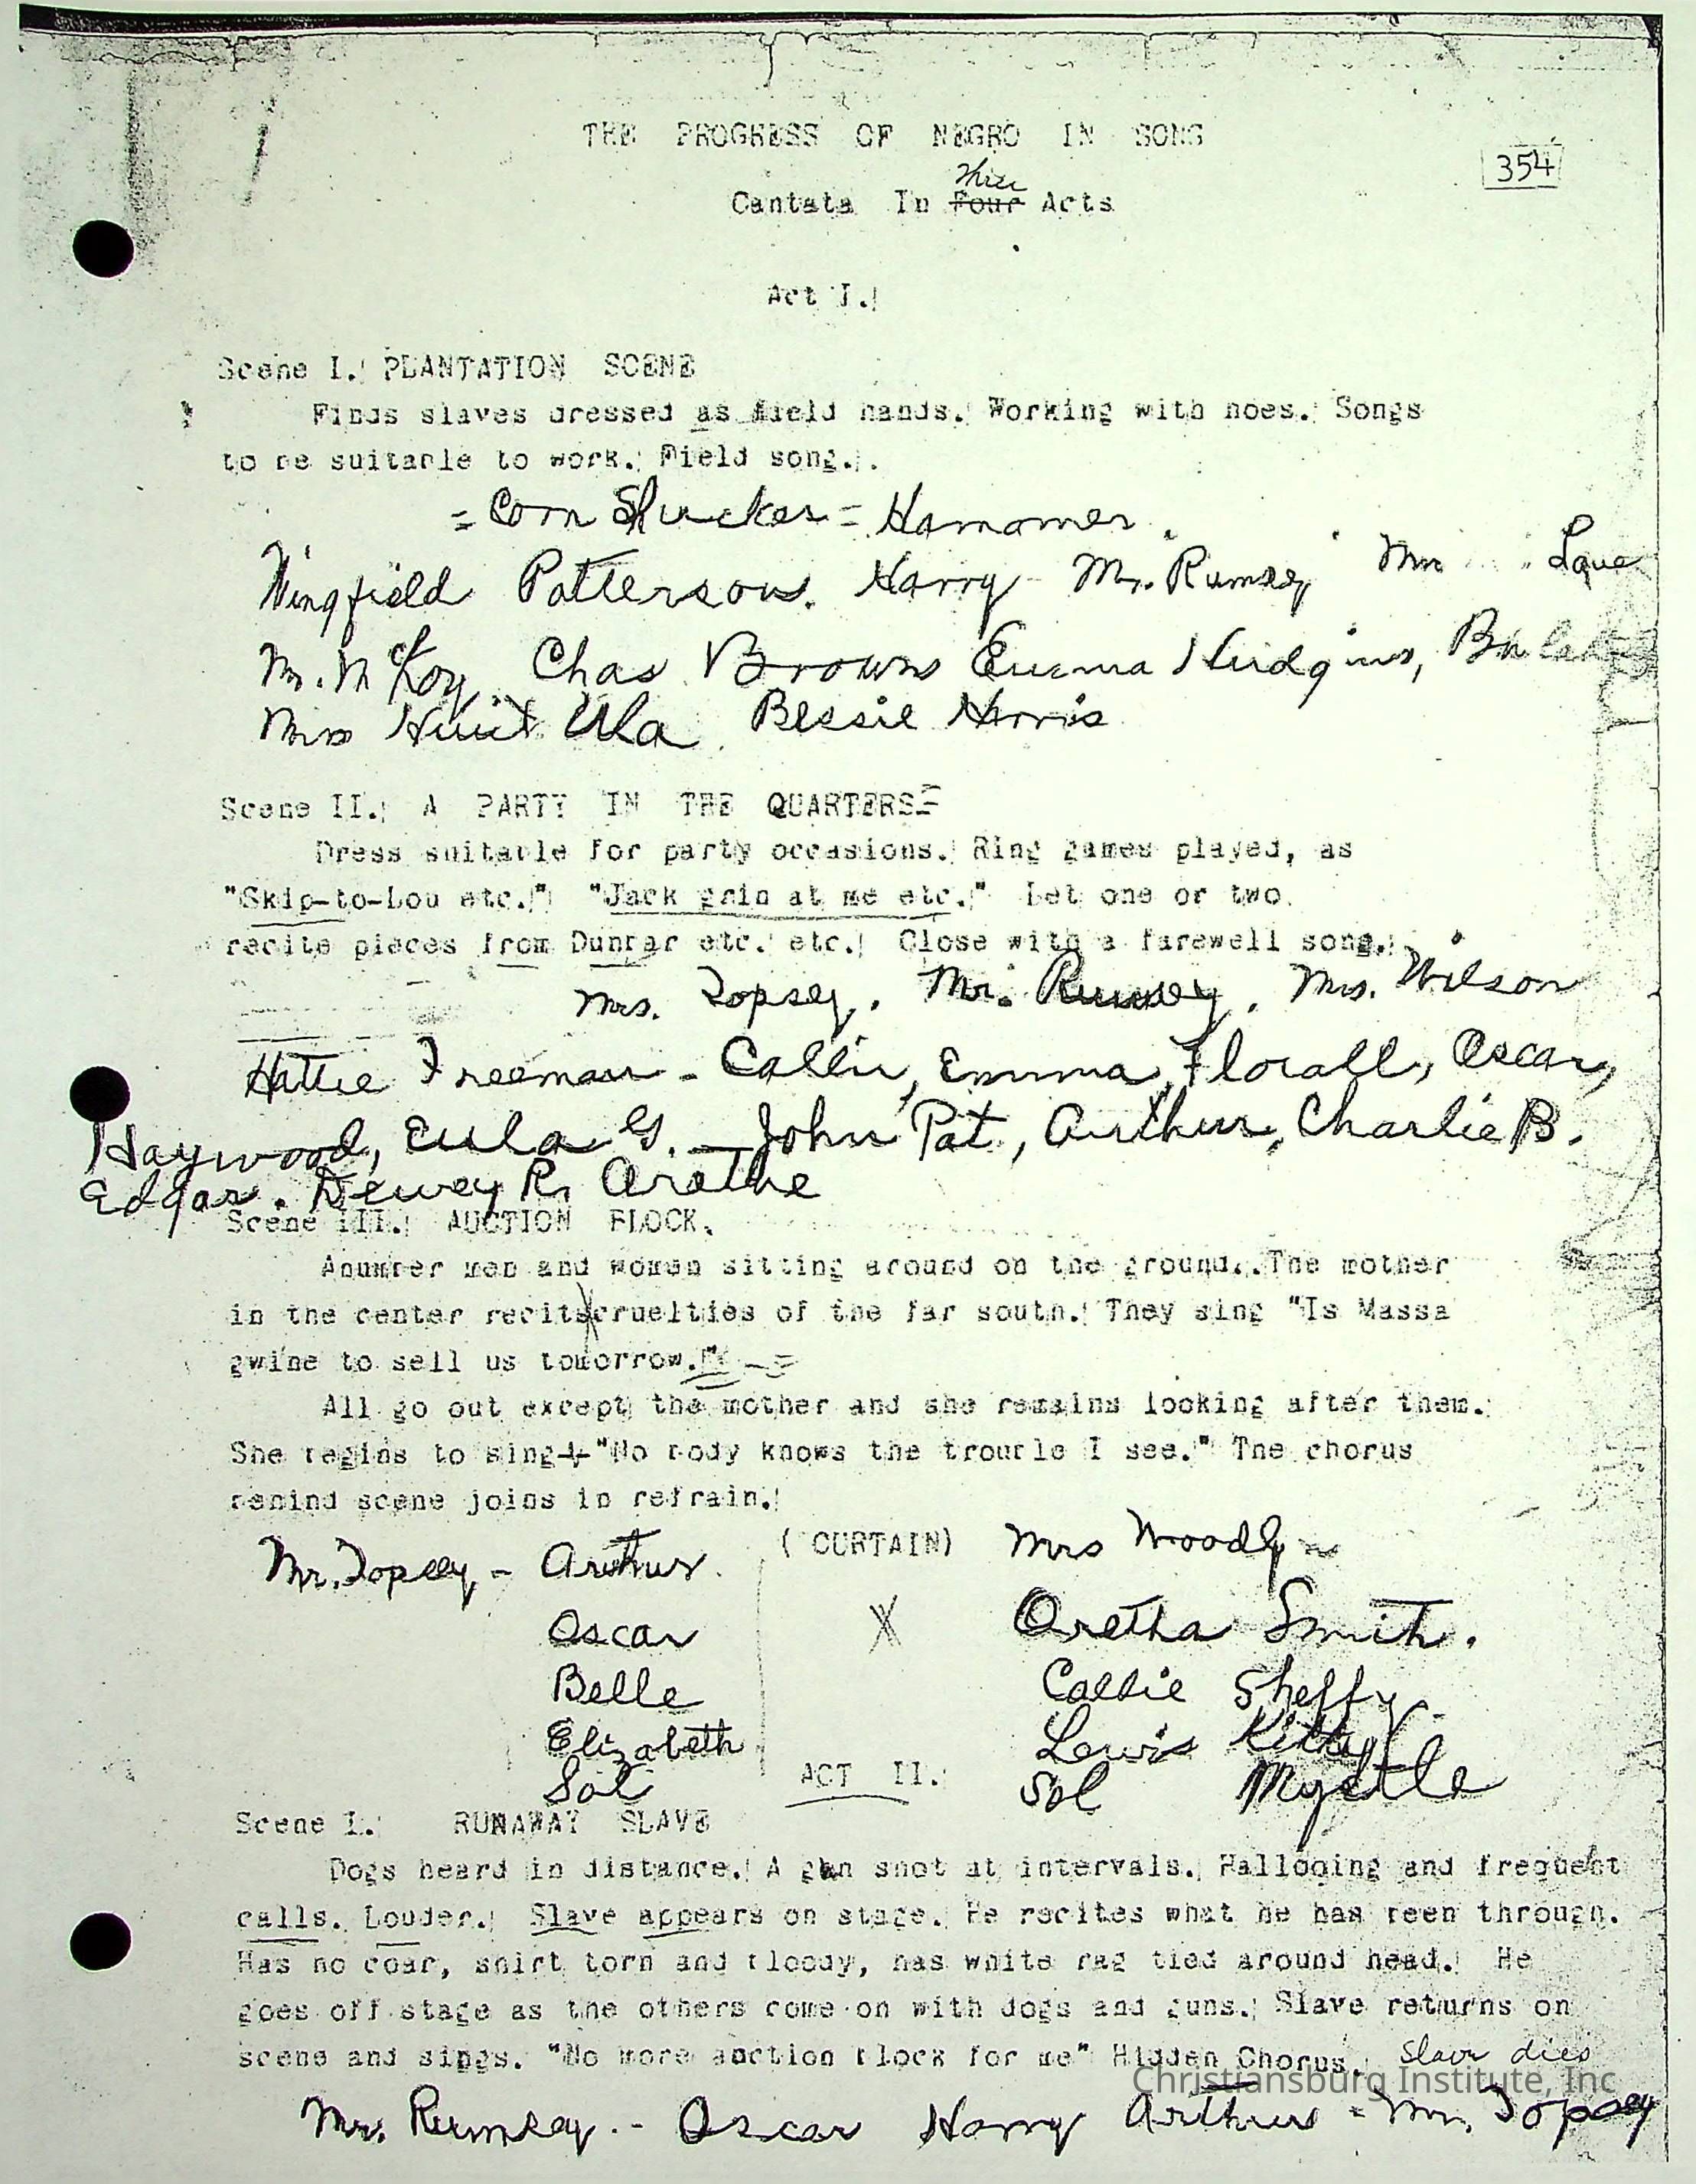 THE PROGRESS OF NEGRO IN SONG
354
Three
Cantata In Four Acts
Act I.
Scene I. PLANTATION SCENE
Finds slaves dressed as field hands. Working with hoes. Songs
to be suitable to work. Field song..
= Corn Shucker = Hammer.
Wingfield Patterson. Harry Mr. Rumsey Love
Mr. McKoy. Chas Brown Emma Hudgins,
Miss Ula. Bessie Harris
Scene II. A PARTY IN THE QUARTERS
Dress suitable for party occasions. Ring games played, as
"Skip-to-Lou etc." "Jack grin at me etc." Let one or two
recite pieces from Dunbar etc. etc. Close with a farewell song.
Mrs. Topsey. Mr. Rumsey. Mrs. Wilson
Hattie Freeman - Callie, Emma, Florall, Oscar,
Haywood, Eula G. - John Pat, Arthur, Charlie B.
Edgar. Dewey R. Aretha
Scene III. AUCTION BLOCK.
Anumber men and women sitting around on the ground..The mother
in the center recits cruelties of the far south. They sing "Is Massa
gwine to sell us tomorrow."
All go out except the mother and she remains looking after them.
She begins to sing "No body knows the trouble I see." The chorus
behind scene joins in refrain.
Mr. Topsey - Arthur. (CURTAIN) Mrs Woodlyn
Oscar X Oretha Smith.
Belle Callie Sheffy.
Elizabeth Lewis Kitty
Sol ACT II. Sol Myrtle
Scene I. RUNAWAY SLAVE
Dogs heard in distance. A gun shot at intervals. Hallooing and frequent
calls. Louder. Slave appears on stage. He recites what he has been through.
Has no coat, shirt torn and bloody, has white rag tied around head. He
goes off stage as the others come on with dogs and guns. Slave returns on
scene and sings. "No more auction block for me" Hidden Chorus. Slave dies
Christiansburg Institute, Inc
Mr. Rumsey. - Oscar Harry Arthur - Mr. Topsey